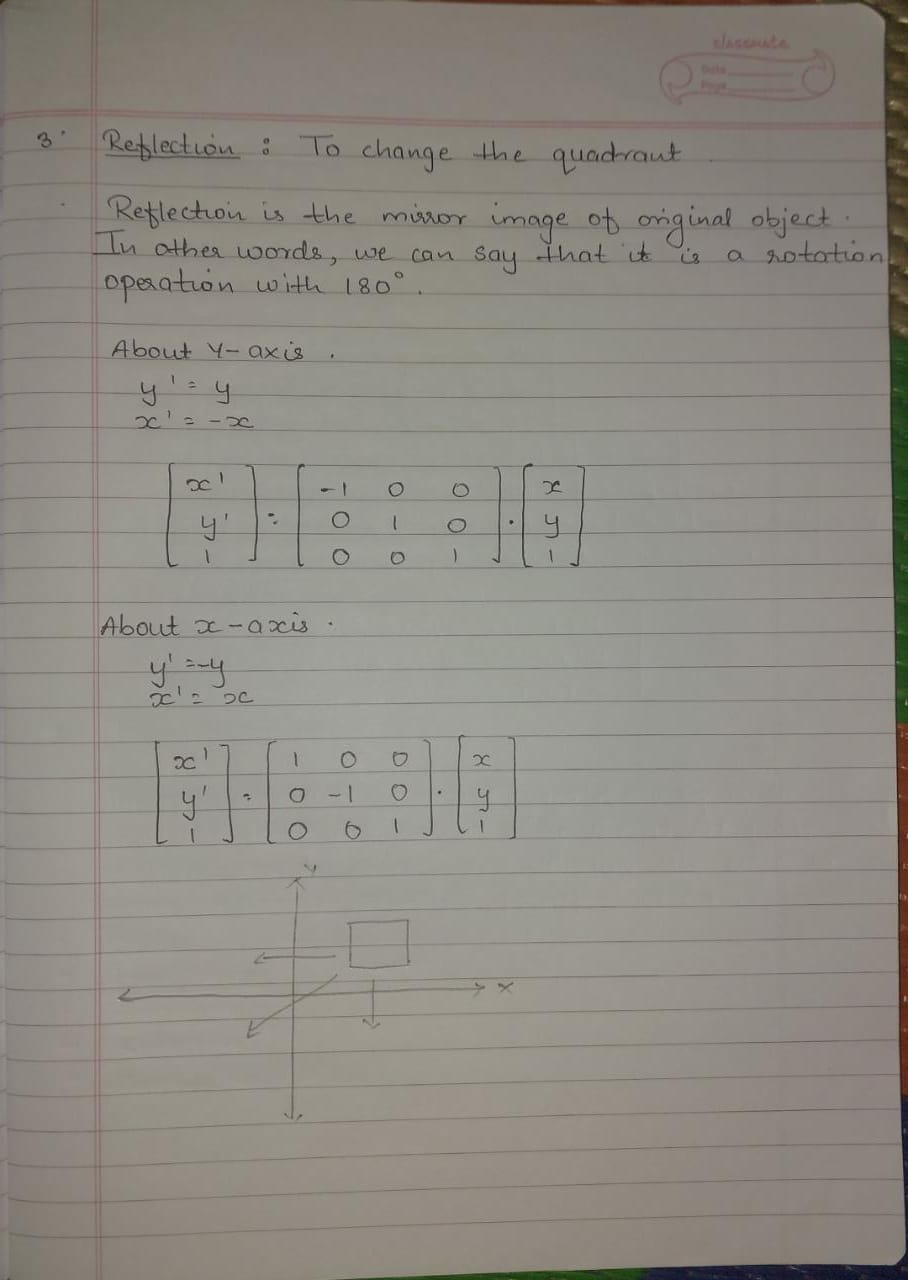 classmate
Date
Page
3. Reflection : To change the quadrant
Reflection is the mirror image of original object.
In other words, we can say that it is a rotation
operation with 180°.
About Y-axis.
y' = y
x' = -x
[x'] = [-1 0 0] . [x]
[y'] [0 1 0] [y]
[1] [0 0 1] [1]
About x-axis.
y' = -y
x' = x
[x'] = [1 0 0] . [x]
[y'] [0 -1 0] [y]
[1] [0 0 1] [1]
Y
X